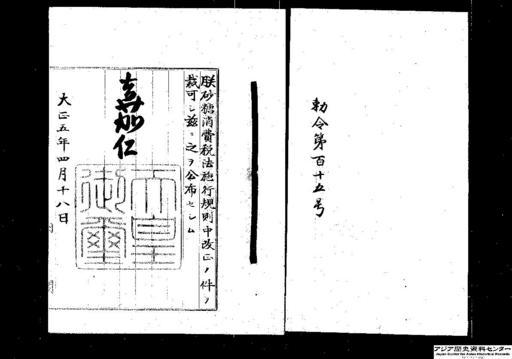 勅令第百十五号
朕砂糖消費税法施行規則中改正ノ件ヲ
裁可シ茲ニ之ヲ公布セシム
嘉仁
天皇御璽
大正五年四月十八日
アジア歴史資料センター
Japan Center for Asian Historical Records